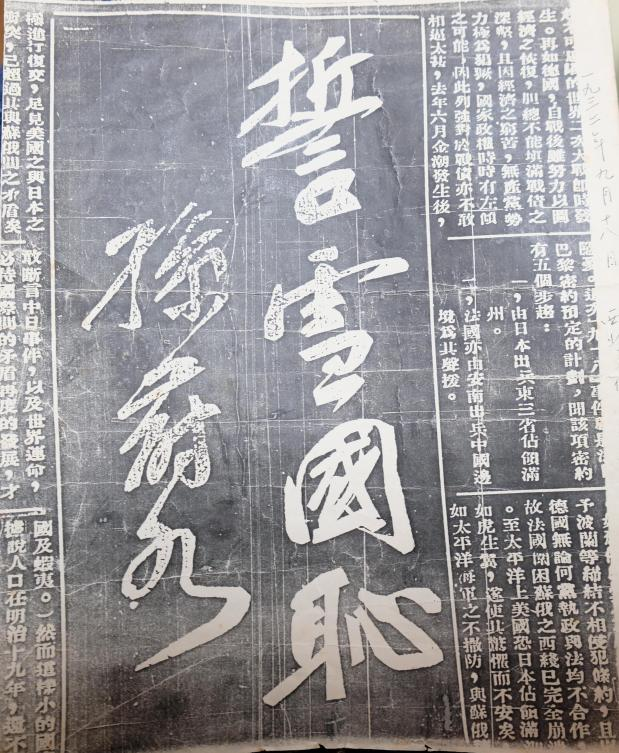 一九三二年九月十八日
的世界二次大戰即時發
生。再如德國，自戰後雖努力以圖
經濟之恢復，但總不能填滿戰債之
深壑，且因經濟之窮苦，無產黨勢
力極爲猖獗，國家政權時時有左傾
之可能，因此列強對於戰債亦不敢
相逼太甚，去年六月金潮發生後，
九一八事件就是法
巴黎密約預定的計劃，聞該項密約
有五個步趨：
一，由日本出兵東三省佔領滿
州。
一，法國亦由安南出兵中國邊
境爲其聲援。
予波蘭等締結不相侵犯條約，且
德國無論何黨執政與法均不合作
故法國閉困蘇俄之西綫已完全崩
。至太平洋上美國恐日本佔領滿
如虎生翼，遂使其驚懼而不安矣
如太平洋海軍之不撤防，與蘇俄
誓雪國恥
孫蔚如
極進行復交，足見美國之與日本之
衝突，已超過其與蘇俄間之矛盾矣
敢斷言中日事件，以及世界運命，
必待國際間的矛盾再度的發展，才
國及蝦夷。）然而這樣小的國
據說人口在明治十九年，還不